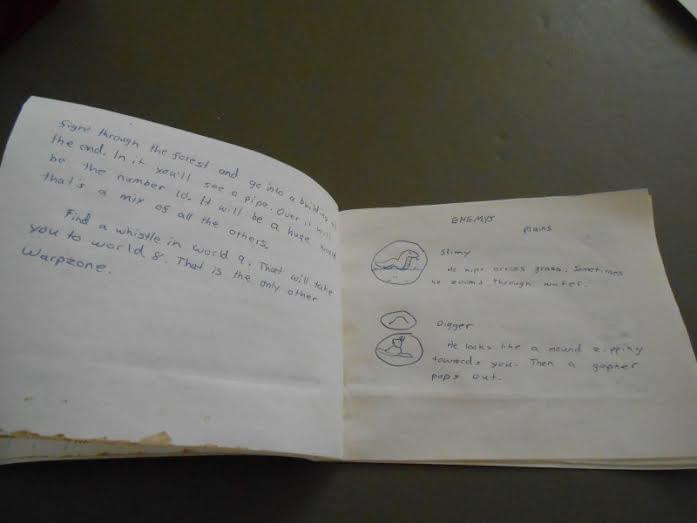 Signs through the forest and go into a building at
the end. In it you'll see a pipe. Over it will
be the number 10. It will be a huge world
that's a mix of all the others.
Find a whistle in world 9. That will take
you to world 8. That is the only other
Warpzone.
ENEMYS
Plains
Slimy
He zips across grass. Sometimes
he zooms through water.
Digger
He looks like a mound zipping
towards you. Then a gopher
pops out.